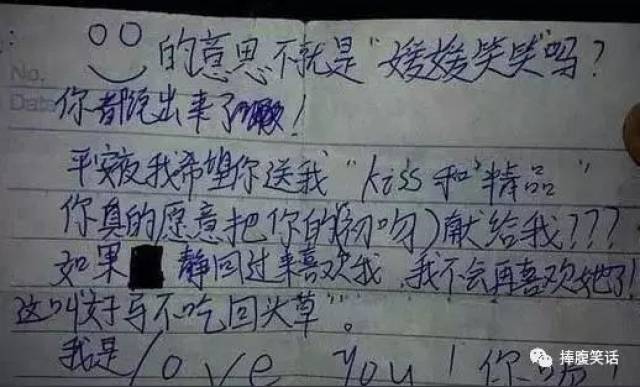 No.
的意思不就是"媛媛笑笑"吗?
Date
你都说出来了啊!
平安夜我希望你送我"kiss和精品"
你真的愿意把你的(初吻)献给我???
如果 静回过来喜欢我,我不会再喜欢她了!
这叫"好马不吃回头草"。
我是love you!你呢?
捧腹笑话